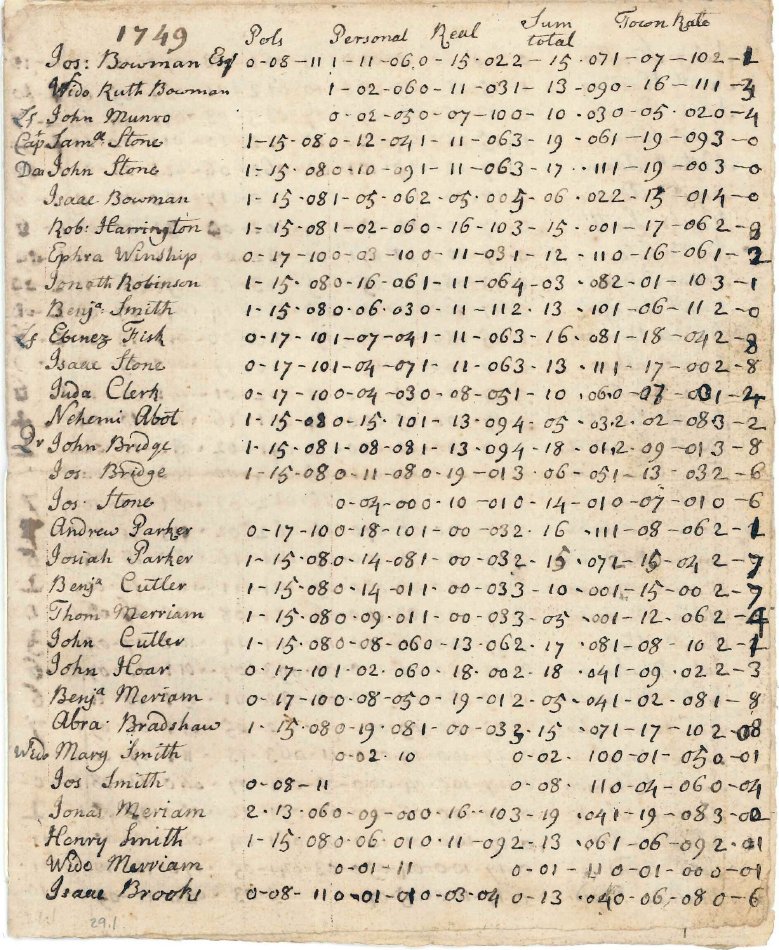 1749 Pols Personal Real Sum total Town Rate
Jos: Bowman Esqr 0-08-11 1-11-06 0-15-02 2-15-07 1-07-10 2-1
Wido Ruth Bowman 1-02-06 0-11-03 1-13-09 0-16-11 1-3
Ls John Munro 0-02-05 0-07-10 0-10-03 0-05-02 0-4
Cap Samll Stone 1-15-08 0-12-04 1-11-06 3-19-06 1-19-09 3-0
Dea John Stone 1-15-08 0-10-09 1-11-06 3-17-11 1-19-00 3-0
Isaac Bowman 1-15-08 1-05-06 2-05-00 5-06-02 2-13-01 4-0
Rob: Harrington 1-15-08 1-02-06 0-16-10 3-15-00 1-17-06 2-8
Ephra Winship 0-17-10 0-03-10 0-11-03 1-12-11 0-16-06 1-2
Jonath Robinson 1-15-08 0-16-06 1-11-06 4-03-08 2-01-10 3-1
Benja Smith 1-15-08 0-06-03 0-11-11 2-13-10 1-06-11 2-0
Ls Ebenez Fisk 0-17-10 1-07-04 1-11-06 3-16-08 1-18-04 2-8
Isaac Stone 0-17-10 1-04-07 1-11-06 3-13-11 1-17-00 2-8
Juda Clerk 0-17-10 0-04-03 0-08-05 1-10-06 0-07-
Nehemi Abot 1-15-08 0-15-10 1-13-09 4-05-03 2-02-08 3-2
Dr John Bridge 1-15-08 1-08-08 1-13-09 4-18-01 2-09-01 3-8
Jos: Bridge 1-15-08 0-11-08 0-19-01 3-06-05 1-13-03 2-6
Jos Stone 0-04-00 0-10-01 0-14-01 0-07-01 0-6
Andrew Parker 0-17-10 0-18-10 1-00-03 2-16-11 1-08-06 2-1
Josiah Parker 1-15-08 0-14-08 1-00-03 2-15-07 1-15-04 2-7
Benja Cutler 1-15-08 0-14-01 1-00-03 3-10-00 1-15-00 2-7
Thom Merriam 1-15-08 0-09-01 1-00-03 3-05-00 1-12-06 2-4
John Cutler 1-15-08 0-08-06 0-13-06 2-17-08 1-08-10 2-1
John Hoar 0-17-10 1-02-06 0-18-00 2-18-04 1-09-02 2-3
Benja Meriam 0-17-10 0-08-05 0-19-01 2-05-04 1-02-08 1-8
Abra. Bradshaw 1-15-08 0-19-08 1-00-03 3-15-07 1-17-10 2-08
Wido Mary Smith 0-02-10 0-02-10 0-01-05 0-01
Jos Smith 0-08-11 0-08-11 0-04-06 0-04
Jonas Meriam 2-13-06 0-09-00 0-16-10 3-19-04 1-19-08 3-00
Henry Smith 1-15-08 0-06-01 0-11-09 2-13-06 1-06-09 2-01
Wido Merriam 0-01-11 0-01-11 0-01-00 0-01
Isaac Brooks 0-08-11 0-01-01 0-03-04 0-13-04 0-06-08 0-6
29.1